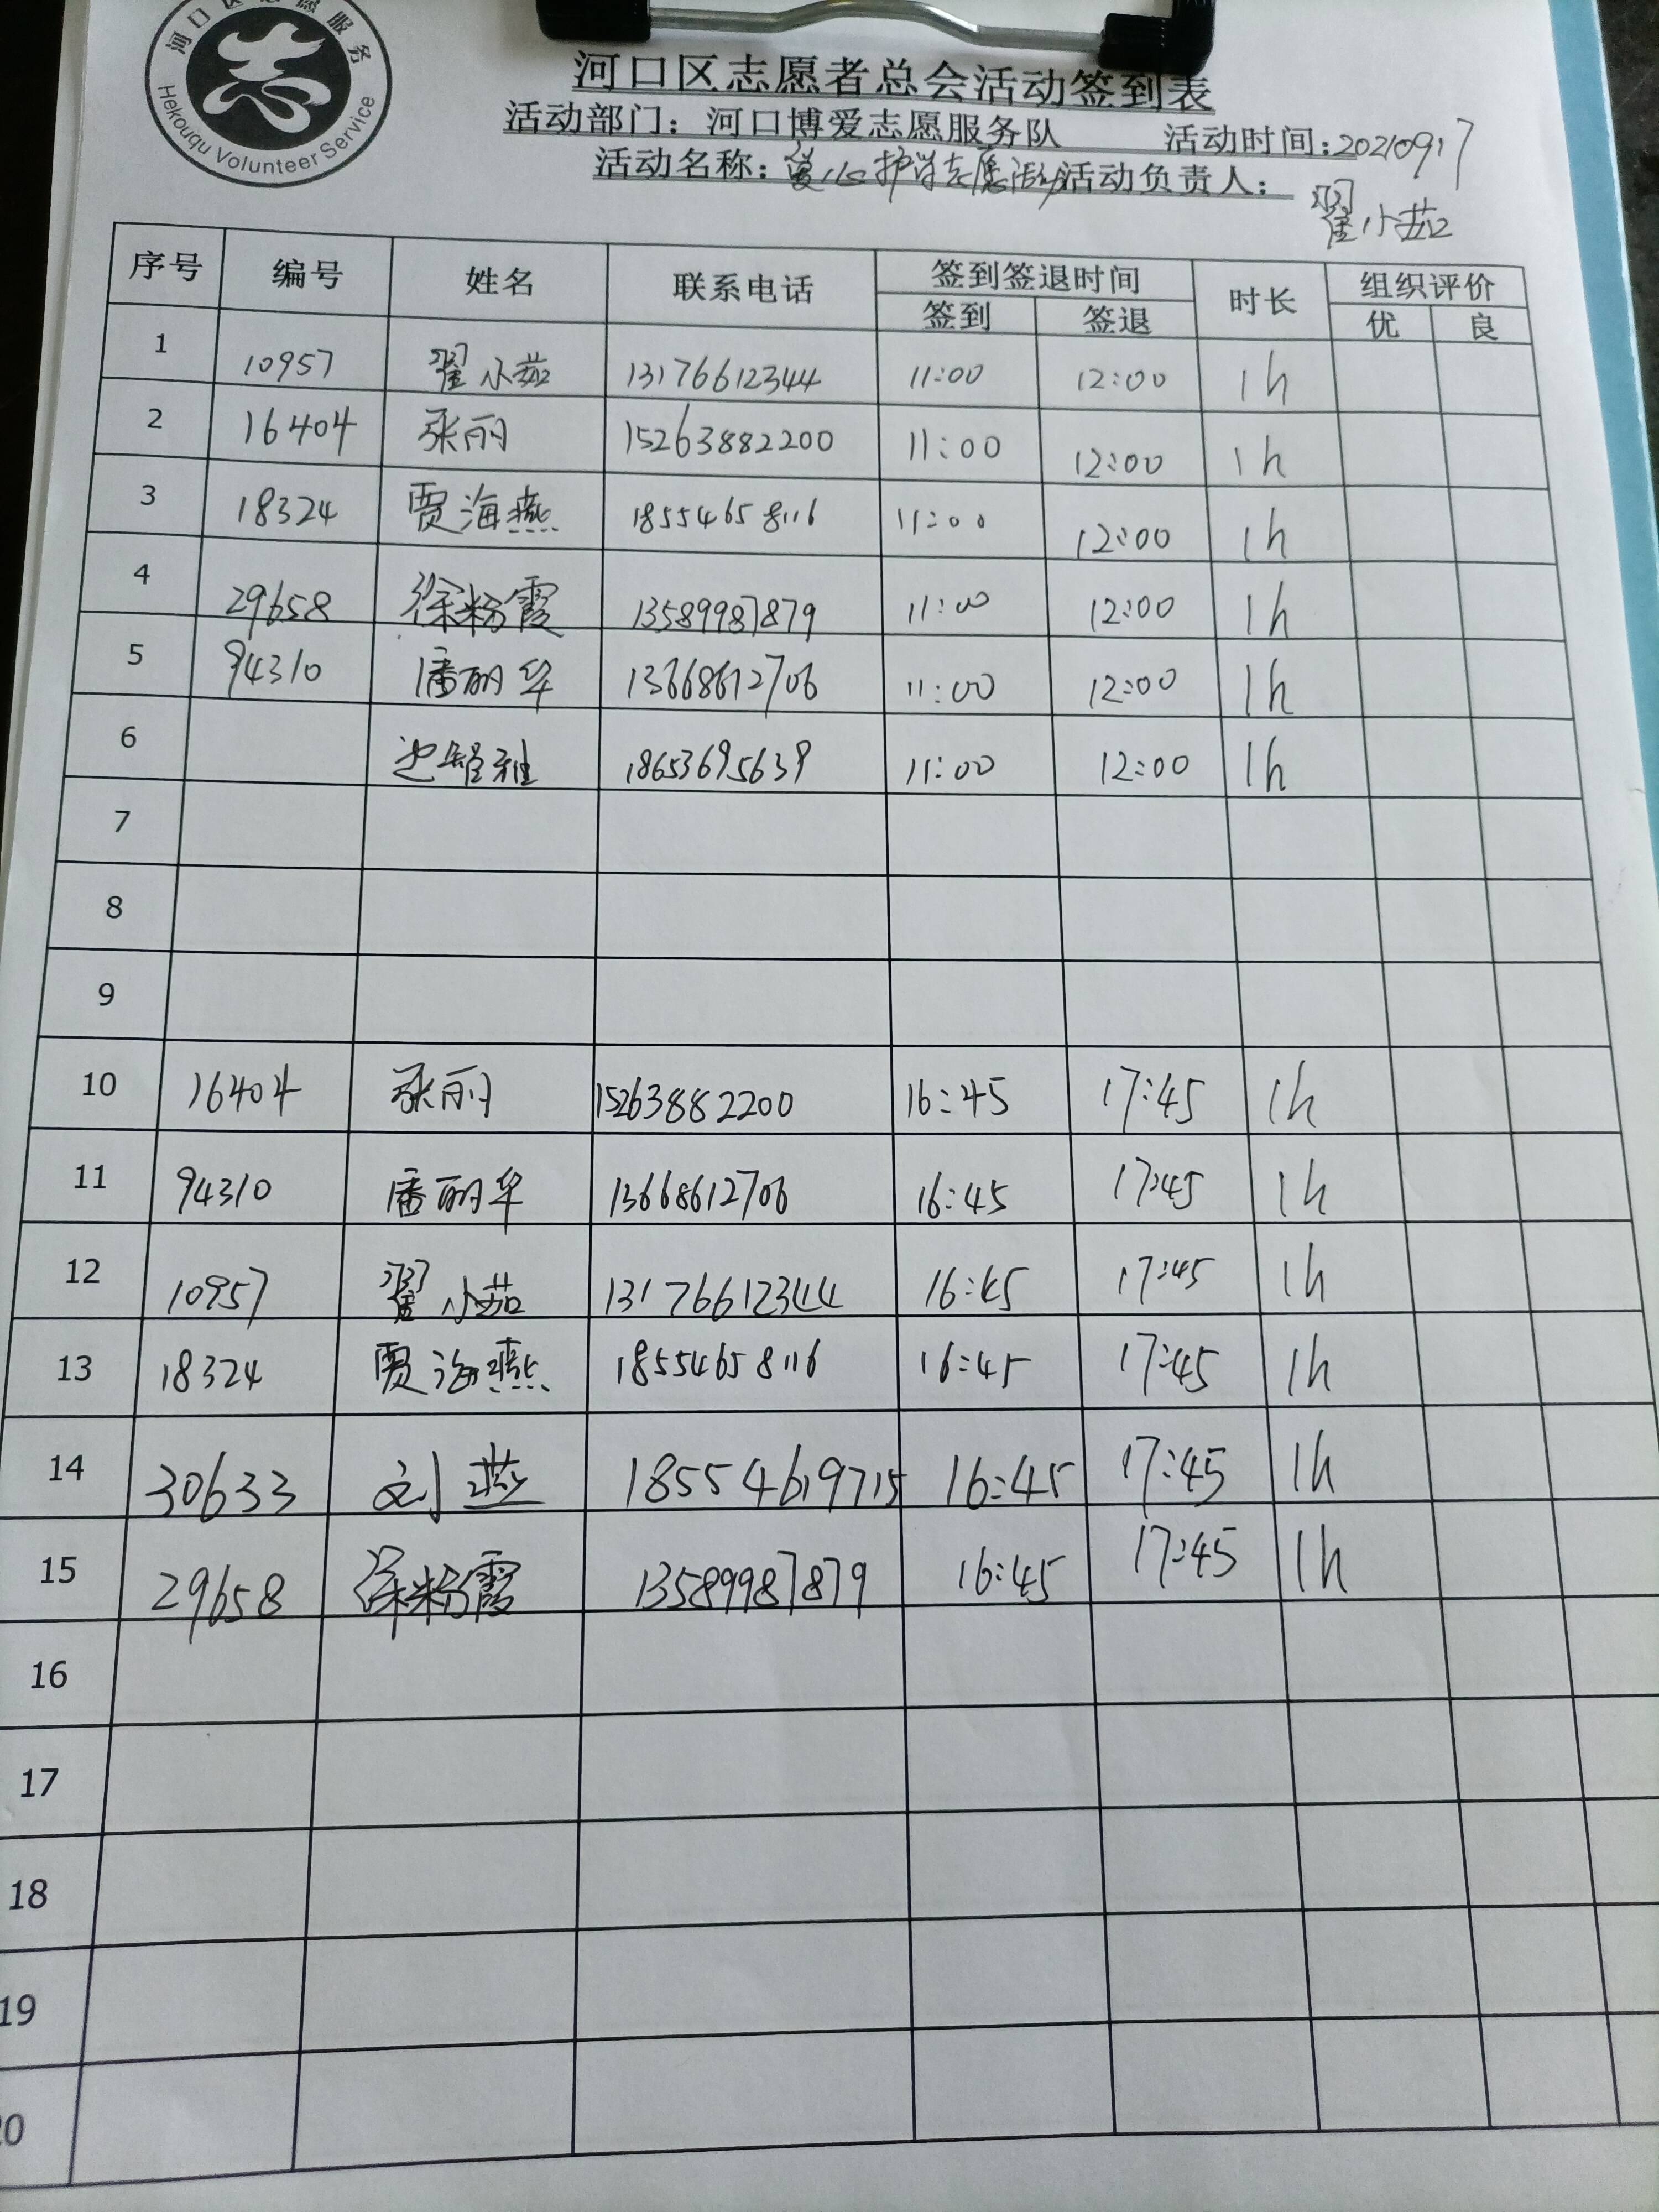 河口区志愿服务
Hekouqu Volunteer Service
河口区志愿者总会活动签到表
活动部门：河口博爱志愿服务队 活动时间：20210917
活动名称：爱心护学志愿活动 活动负责人：翟小茹
序号 编号 姓名 联系电话 签到签退时间 时长 组织评价
签到 签退 优 良
1 10957 翟小茹 13176612344 11:00 12:00 1h
2 16404 张丽 15263882200 11:00 12:00 1h
3 18324 贾海燕 18554658116 11:00 12:00 1h
4 29658 徐粉霞 13589987879 11:00 12:00 1h
5 94310 潘丽华 13668612706 11:00 12:00 1h
6 18653695639 11:00 12:00 1h
7
8
9
10 16404 张丽 15263882200 16:45 17:45 1h
11 94310 潘丽华 13668612706 16:45 17:45 1h
12 10957 翟小茹 13176612344 16:45 17:45 1h
13 18324 贾海燕 18554658116 16:45 17:45 1h
14 30633 刘燕 18554619715 16:45 17:45 1h
15 29658 徐粉霞 13589987879 16:45 17:45 1h
16
17
18
19
20